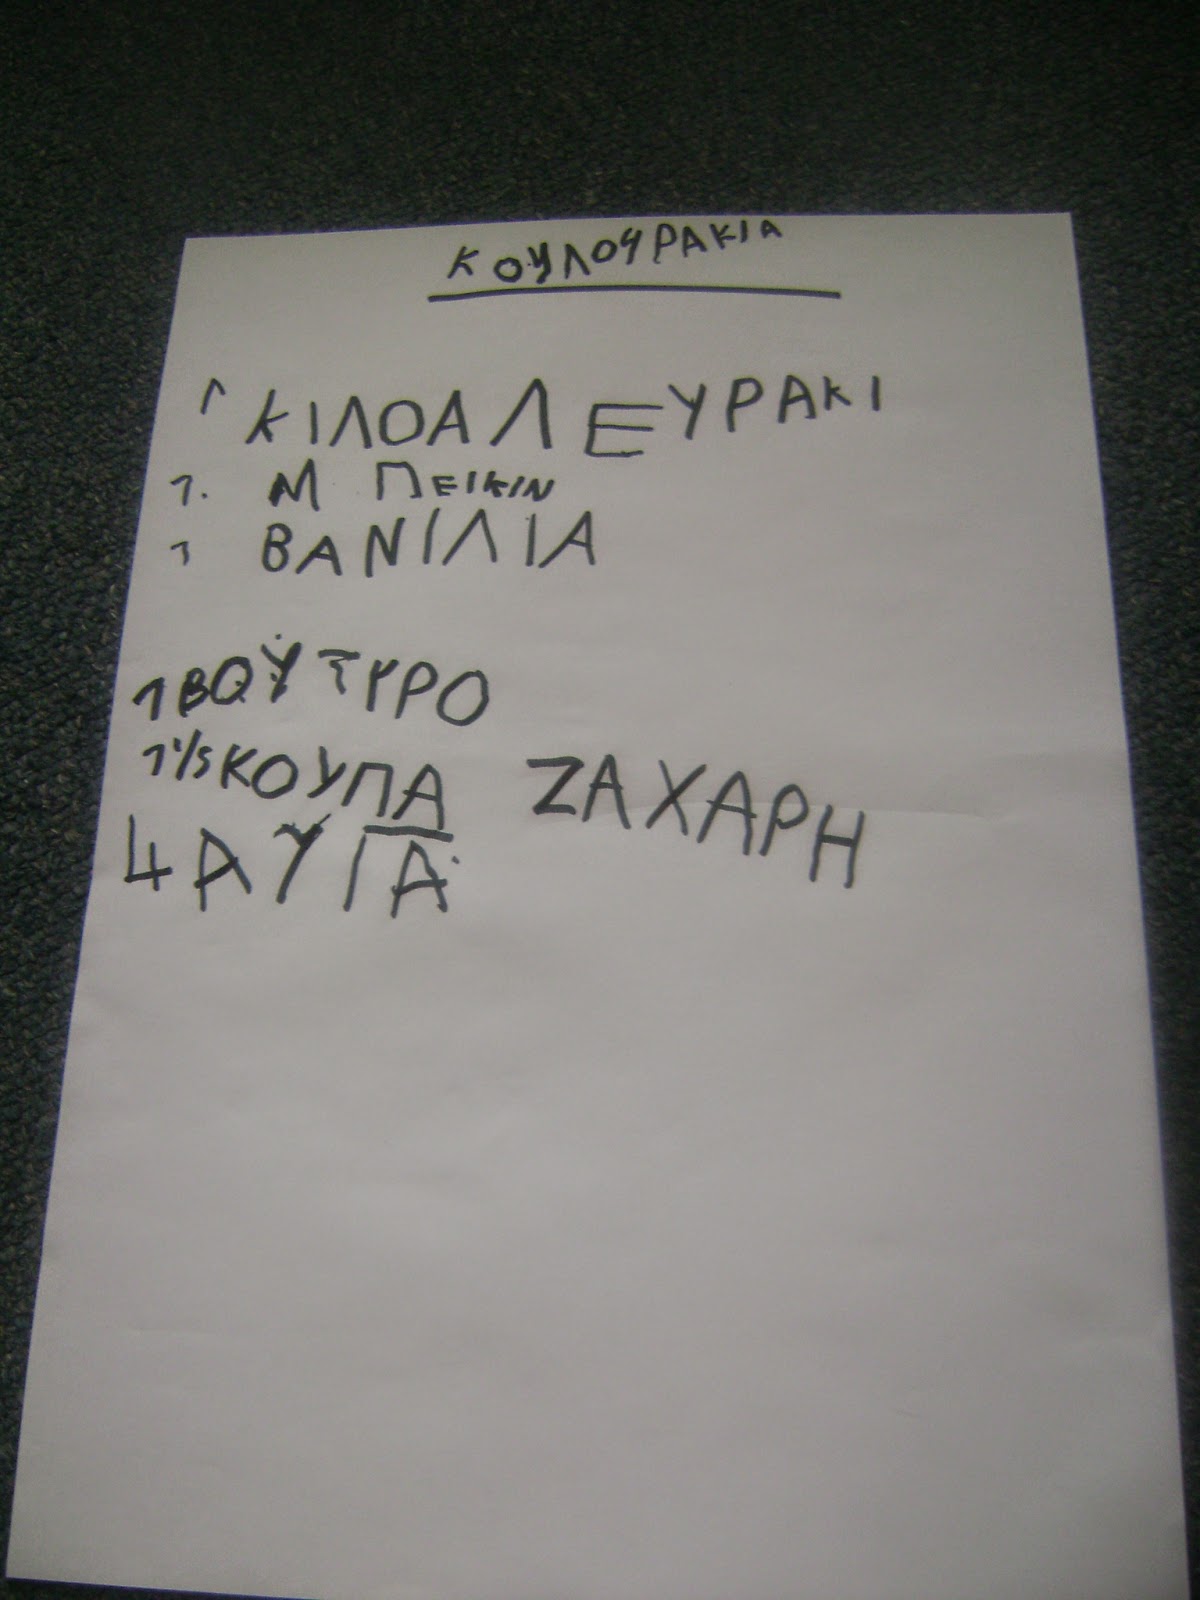 ΚΟΥΛΟΥΡΑΚΙΑ
1 ΚΙΛΟΑΛΕΥΡΑΚΙ
1. Μ ΠΕΙΚΙΝ
1 ΒΑΝΙΛΙΑ
1 ΒΟΥΤΥΡΟ
1 1/5 ΚΟΥΠΑ ΖΑΧΑΡΗ
4 ΑΥΓΑ